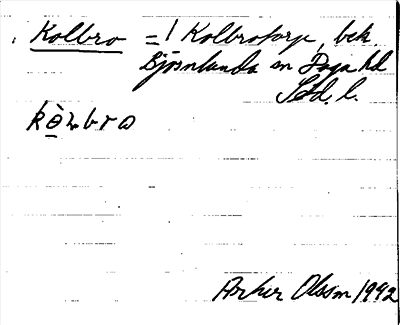 Kolbro = ! Kolbrotorp, bek.
Björnlunda sn Daga hd
Söd. l.
kɵ̀lbro
Arkiv Olsson 1942